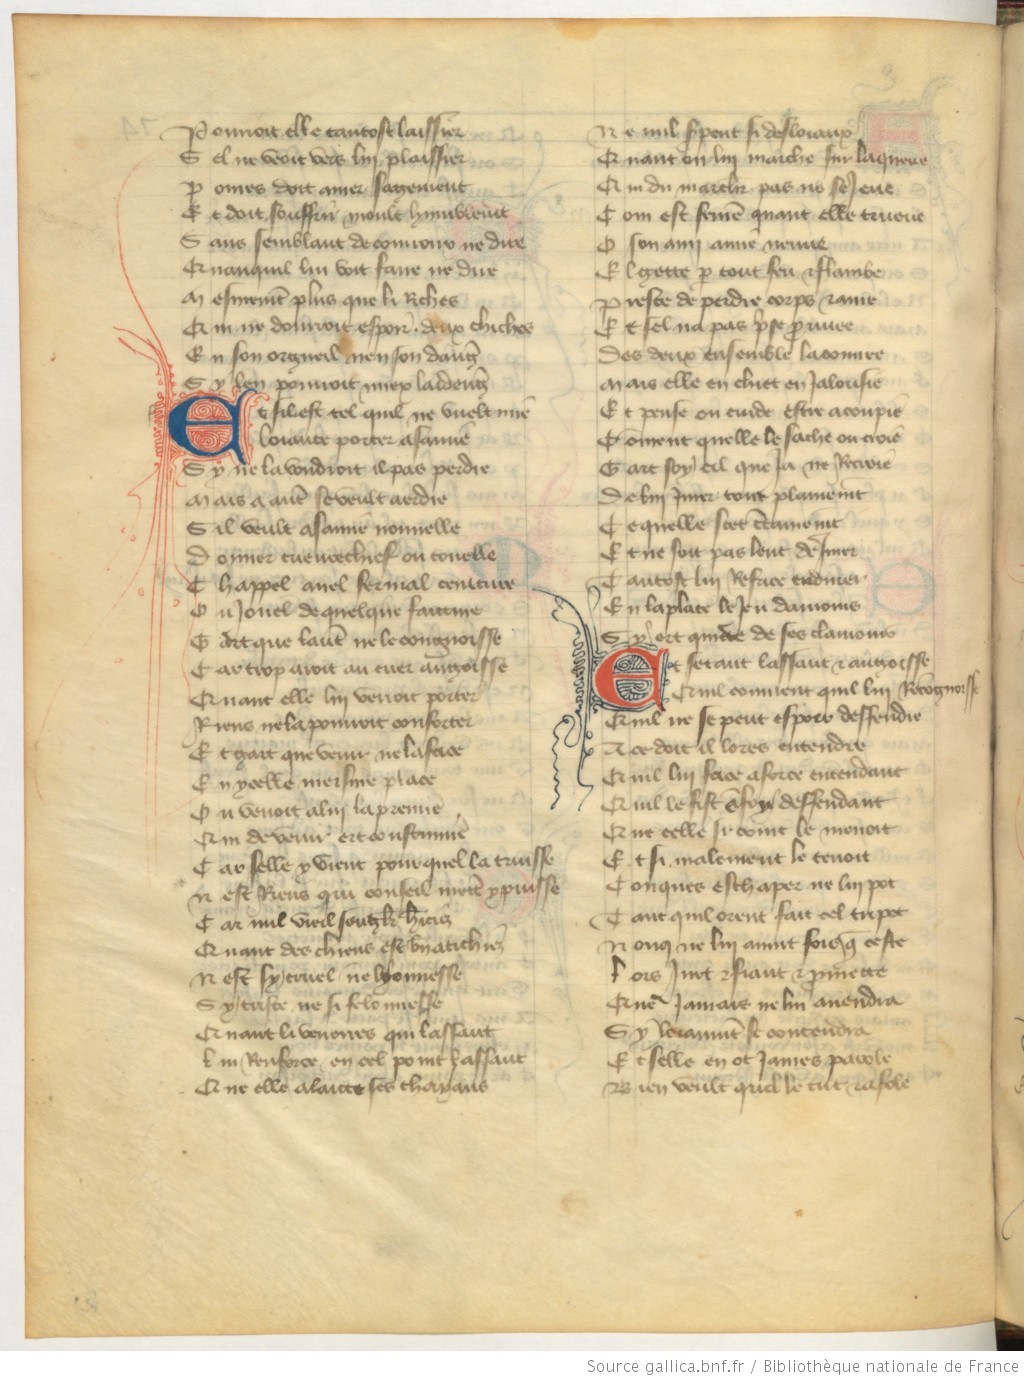 Pouuoit elle tantost laissier
S el ne veoit vers lui plaissier
P omes doit amer sagement
E t doit souffrir moult humblemt
S ans semblant de courroux ne dire
Quanquil lui voit faire ne dire
M esmemt plus que li Riches
Qui ne donroit espoir deux chiches
E n son orgueil nen son daug
S y len pourroit mex laideng
Et sil est tel quil ne vuelt mie
loiaute porter a samie
S y ne la vudroit il pas perdre
M ais a aut se veult aerdre
S il veult a samie nouuelle
D onner cueurechief ou touelle
C happel anel fermal ceinture
O u jouel de quelque faiture
G art que laut ne le congnoisse
C ar trop aroit au cuer angoisse
Quant elle lui verroit porter
Riens ne la pourroit conforter
E t gart que venir ne la face
E n ycelle meisme place
O u venoit a lui la premie
Qui de venir ert coustumie
C ar selle y vient pour quel la truisse
N est Riens qui conseil mett y puisse
C ar nul vieil sengler hicie
Quant des chiens est bn aticie
N est sy cruel ne lyonnesse
S y triste ne si felonnesse
Quant li venerres qui lassaut
L ui Renforce en cel point lassaut
Que elle alaicte ses chayaus
N e nul spent si desloiaux
Quant on lui marche sur la queue
Qui du marchr pas ne se jeue
C om est feme quant elle trueue
O son ami amie neuue
E l gette p tout feu & flambe
Preste de perdre corps & ame
E t sel na pas pse prouuee
Des deux ensemble la couuee
M ais elle en chiet en jalousie
E t pense ou cuide estre acoupie
Coment quelle le sache ou croie
G art soy cil que ja ne Recroie
De lui jurer tout plainemt
C e quelle scet ctainemt
E t ne soit pas lent de jurer
C antost lui Reface endurer
E n la place le jeu damours
S y ort quicte de ses clamours
Et se tant lassaut & angoisse
Quil conuient quil lui Recognoisse
Quil ne se peut espoir deffendre
A ce doit il lores entendre
Quil lui face a force entendant
Quil le fist sur soy deffendant
Que celle si court le menoit
E t si malement le tenoit
C onques eschaper ne lui pot
C ant quil orent fait cel tripot
N onq ne lui auint fois q ceste
L ors jurt & fiant & pmette
Que jamais ne lui auendra
S y leiaumt se contendra
E t selle en ot james parole
B ien veult quel le tut & afole
Source gallica.bnf.fr / Bibliothèque nationale de France